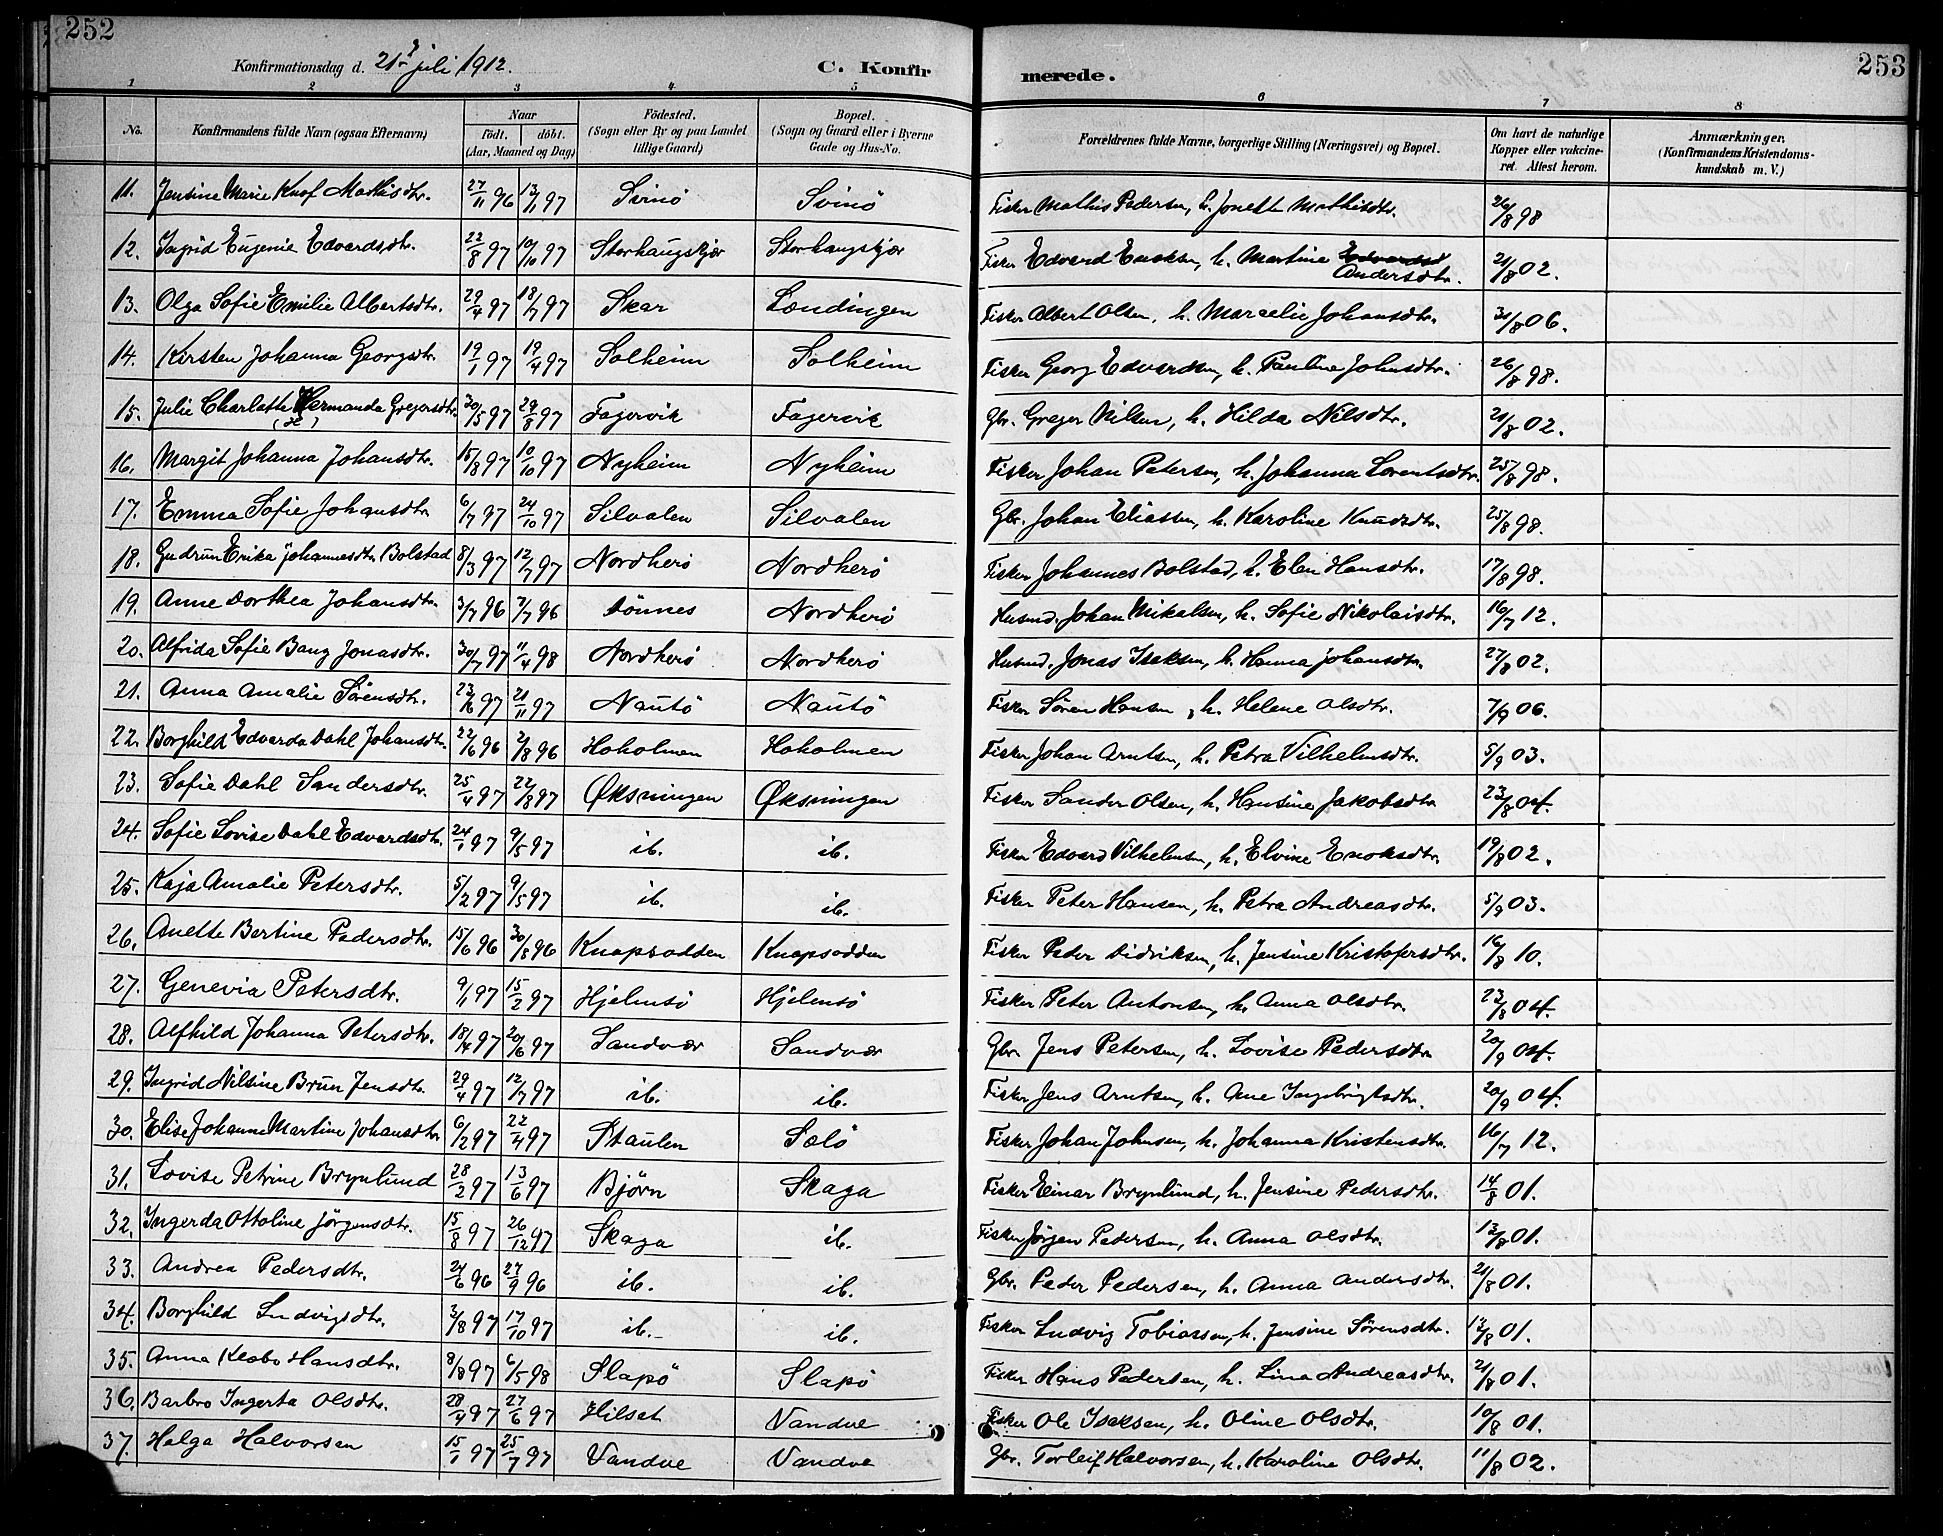 252
Konfirmationsdag d. 21 juli 1912.
C. Konfir
merede.
253
1 2 3 4 5 6 7 8
No.
Konfirmandens fulde Navn (ogsaa Efternavn)
Naar
Födt. döbt.
(Aar, Maaned og Dag)
Födested.
(Sogn eller By og paa Landet
tillige Gaard)
Bopæl.
(Sogn og Gaard eller i Byerne
Gade og Hus-No.
Forældrenes fulde Navne, borgerlige Stilling (Næringsvei) og Bopæl.
Om havt de naturlige
Kopper eller vakcine-
ret. Attest herom.
Anmærkninger.
(Konfirmandens Kristendoms-
kundskab m. V.)
11. Jensine Marie Knof Mathisdtr. 27/11 96 13/11 97 Svinö Svinö Fisker Mathis Pedersen, h. Jonette Mathisdtr. 26/8 98
12. Ingrid Eugenie Edvardsdtr. 22/8 97 10/10 97 Storhaugskjær Storhaugskjær Fisker Edvard Enoksen, h. Martine Edvardsd Andersdtr. 21/8 02.
13. Olga Sofie Emilie Albertsdtr. 29/4 97 18/7 97 Skar Lændingen Fisker Albert Olsen, h. Marcelie Johansdtr. 31/8 06.
14. Kirsten Johanna Georgsdtr. 19/1 97 19/4 97 Solheim Solheim Fisker Georg Edvardsen, h. Pauline Johnsdtr. 26/8 98.
15. Julie Charlotte Hermanda Gregersdtr. (H) 30/5 97 29/8 97 Fagervik Fagervik Gbr. Greger Nilsen, h. Hilda Nilsdtr. 21/8 02.
16. Margit Johanna Johansdtr. 15/8 97 10/10 97 Nyheim Nyheim Fisker Johan Petersen, h. Johanna Lorentsdtr. 25/8 98.
17. Emma Sofie Johansdtr. 6/7 97 24/10 97 Silvalen Silvalen Gbr. Johan Eliassen, h. Karoline Knudsdtr. 25/8 98.
18. Gudrun Erika Johannesdtr. Bolstad 8/3 97 12/7 97 Nordherö Nordherö Fisker Johannes Bolstad, h. Elen Hansdtr. 17/8 98.
19. Anne Dorthea Johansdtr. 3/7 96 7/7 96 Dönnes Nordherö Husmd. Johan Mikalsen, h. Sofie Nikolaisdtr. 16/7 12.
20. Alfrida Sofie Bang Jonasdtr. 30/7 97 11/4 98 Nordherö Nordherö Husmd. Jonas Isaksen, h. Hanna Johansdtr. 27/8 02.
21. Anna Amalie Sörensdtr. 23/6 97 21/11 97 Nautö Nautö Fisker Sören Hansen, h. Helene Olsdtr. 7/9 06.
22. Borghild Edvarda Dahl Johansdtr. 22/6 96 2/8 96 Hoholmen Hoholmen Fisker Johan Arntsen, h. Petra Vilhelmsdtr. 5/9 03.
23. Sofie Dahl Sandersdtr. 25/4 97 22/8 97 Øksningen Øksningen Fisker Sander Olsen, h. Hansine Jakobsdtr 23/8 04.
24. Sofie Lovise Dahl Edvardsdtr. 24/1 97 9/5 97 ib. ib. Fisker Edvard Vilhelmsen, h. Elvine Enoksdtr. 19/8 02.
25. Kaja Amalie Petersdtr. 5/2 97 9/5 97 ib. ib. Fisker Peter Hansen, h. Petra Andreasdtr. 5/9 03.
26. Anette Bertine Pedersdtr. 15/6 96 30/8 96 Knapsodden Knapsodden Fisker Peder Didriksen, h. Jensine Kristofersdtr. 16/8 10.
27. Genevia Petersdtr. 9/1 97 15/2 97 Hjelmsö Hjelmsö Fisker Peter Antonsen, h. Anna Olsdtr. 23/8 04.
28. Alfhild Johanna Petersdtr. 18/4 97 20/6 97 Sandvær Sandvær Gbr. Jens Petersen, h. Lovise Pedersdtr. 20/9 04.
29. Ingrid Nilsine Brun Jensdtr. 29/4 97 12/7 97 ib. ib. Fisker Jens Arntsen, h. Ane Ingebrigtsdtr. 20/9 04.
30. Elise Johanne Martine Johansdtr 6/2 97 22/4 97 Staulen Sælö Fisker Johan Johnsen, h. Johanna Kristensdtr. 16/7 12.
31. Lovise Petrine Brynlund 28/2 97 13/6 97 Björn Skaga Fisker Einar Brynlund, h. Jensine Pedersdtr. 14/8 01.
32. Ingerda Ottoline Jörgensdtr. 15/8 97 26/12 97 Skaga ib. Fisker Jörgen Pedersen, h. Anna Olsdtr. 13/8 01.
33. Andrea Pedersdtr. 24/6 96 27/9 96 ib. ib. Gbr. Peder Pedersen, h. Anna Andersdtr. 21/8 01.
34. Borghild Ludvigsdtr. 3/8 97 17/10 97 ib. ib. Fisker Ludvig Tobiassen, h. Jensine Sörensdtr. 13/8 01.
35. Anna Klæbo Hansdtr. 8/8 97 6/5 98 Slapö Slapö Fisker Hans Pedersen, h. Lina Andreasdtr. 21/8 01.
36. Barbro Ingerta Olsdtr. 28/4 97 27/6 97 Hilset Vandve Fisker Ole Isaksen, h. Oline Olsdtr. 10/8 01.
37. Helga Halvorsen 15/1 97 25/7 97 Vandve Vandve Gbr. Torleif Halvorsen, h. Karoline Olsdtr. 11/8 02.